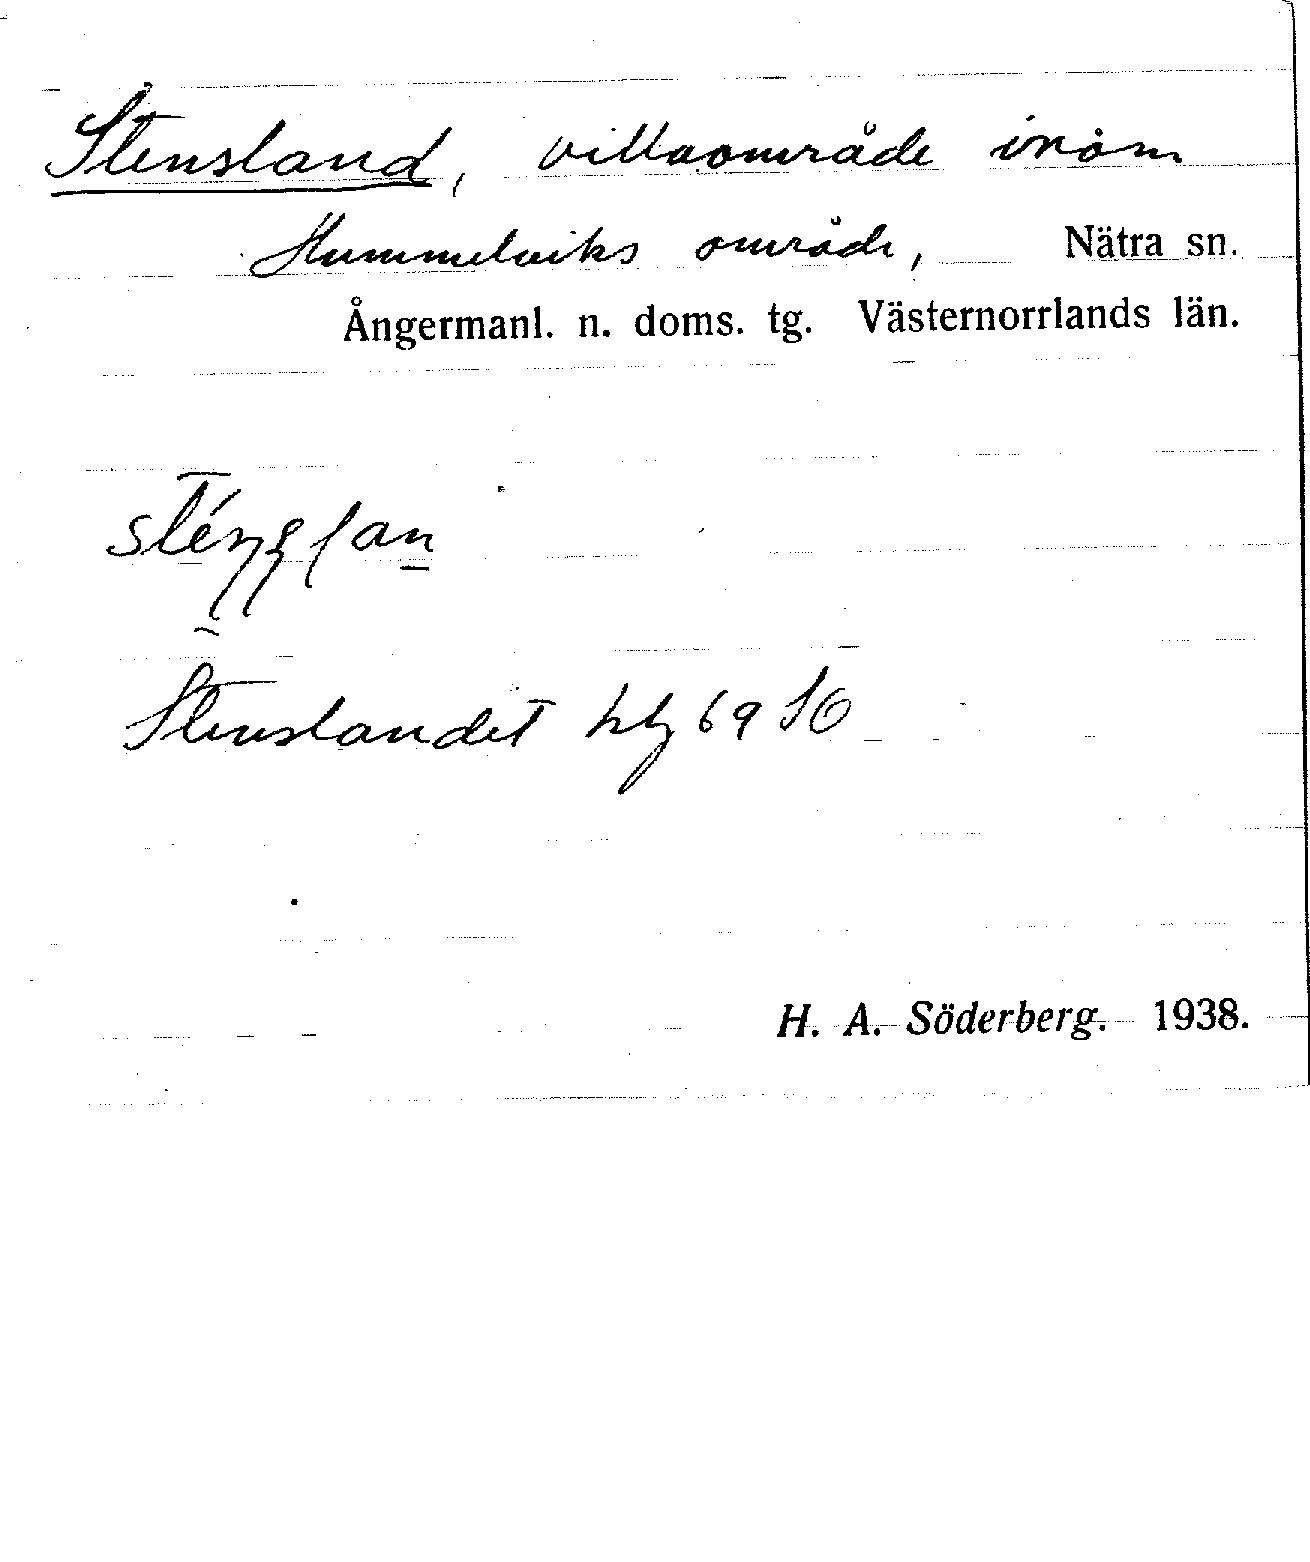 Stensland, villaområde inom
Hummelviks område, Nätra sn.
Ångermanl. n. doms. tg. Västernorrlands län.
Stenslandet hbl 69 SO
H. A. Söderberg. 1938.